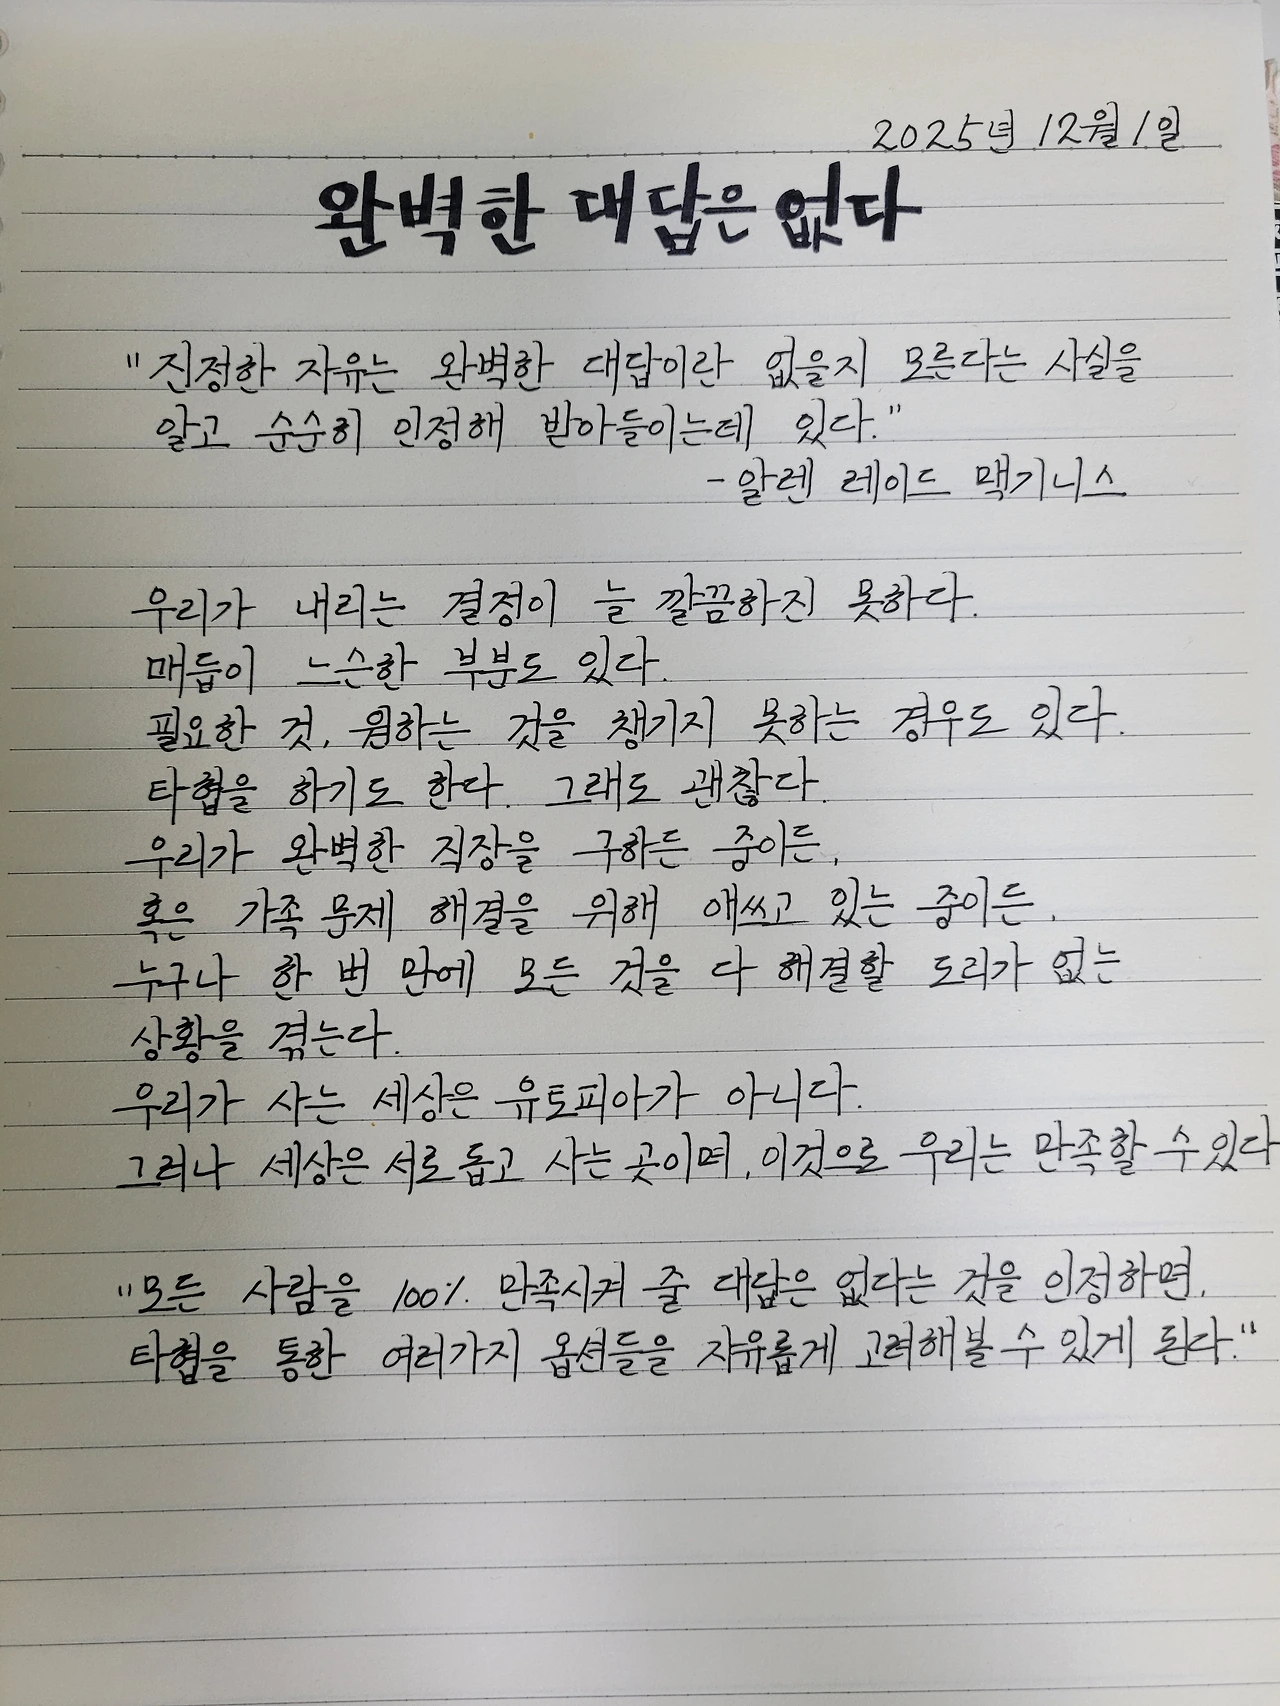 2025년 12월 1일
완벽한 대답은 없다
"진정한 자유는 완벽한 대답이란 없을지 모른다는 사실을
알고 순순히 인정해 받아들이는데 있다."
- 알렌 레이드 맥기니스
우리가 내리는 결정이 늘 깔끔하진 못하다.
매듭이 느슨한 부분도 있다.
필요한 것, 원하는 것을 챙기지 못하는 경우도 있다.
타협을 하기도 한다. 그래도 괜찮다.
우리가 완벽한 직장을 구하든 중이든,
혹은 가족 문제 해결을 위해 애쓰고 있는 중이든,
누구나 한 번 만에 모든 것을 다 해결할 도리가 없는
상황을 겪는다.
우리가 사는 세상은 유토피아가 아니다.
그러나 세상은 서로 돕고 사는 곳이며, 이것으로 우리는 만족할 수 있다
"모든 사람을 100% 만족시켜 줄 대답은 없다는 것을 인정하면,
타협을 통한 여러가지 옵션들을 자유롭게 고려해볼 수 있게 된다."